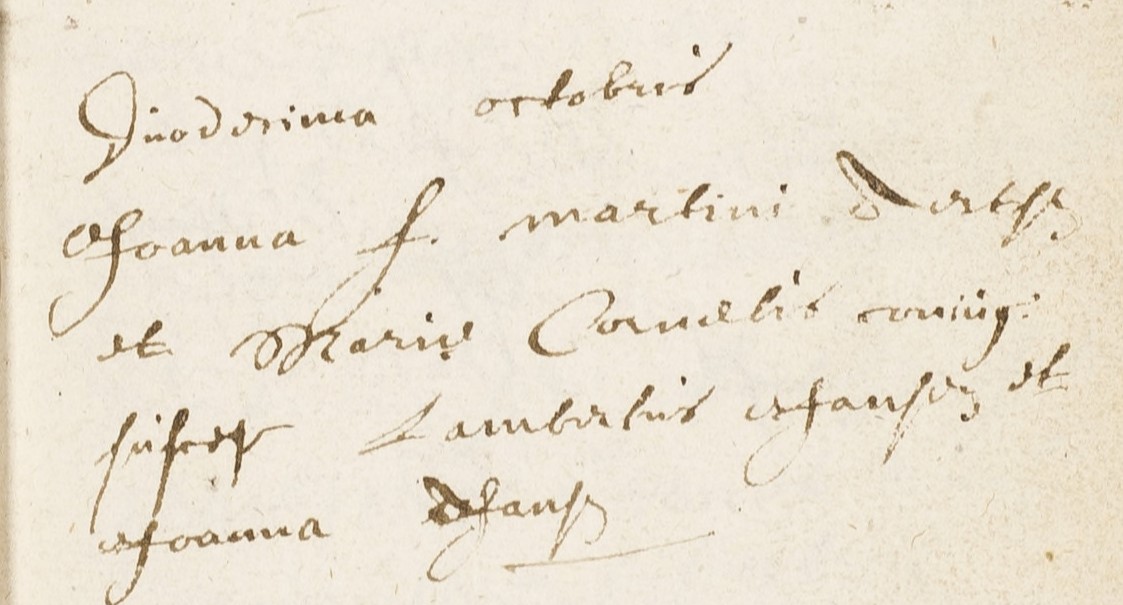 Duodecima octobris
Joanna f. martini
et Marię Cornelis coniug.
suscep Lambertus Jansen et
Joanna Jans